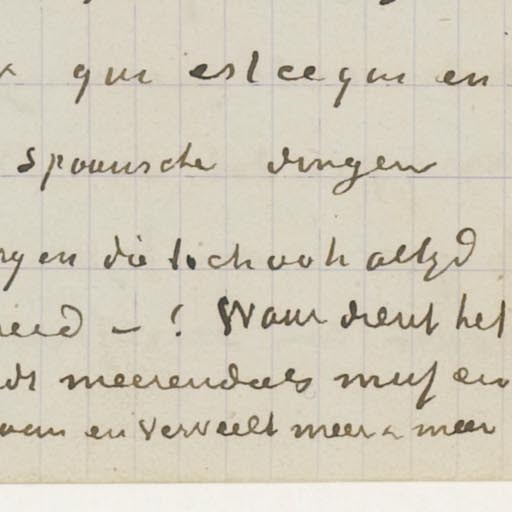 qui est ce qui en
spaansche dingen
en die toch ook altyd
– ! Waar dient het
meerendeels muf en
en verveelt meer & meer